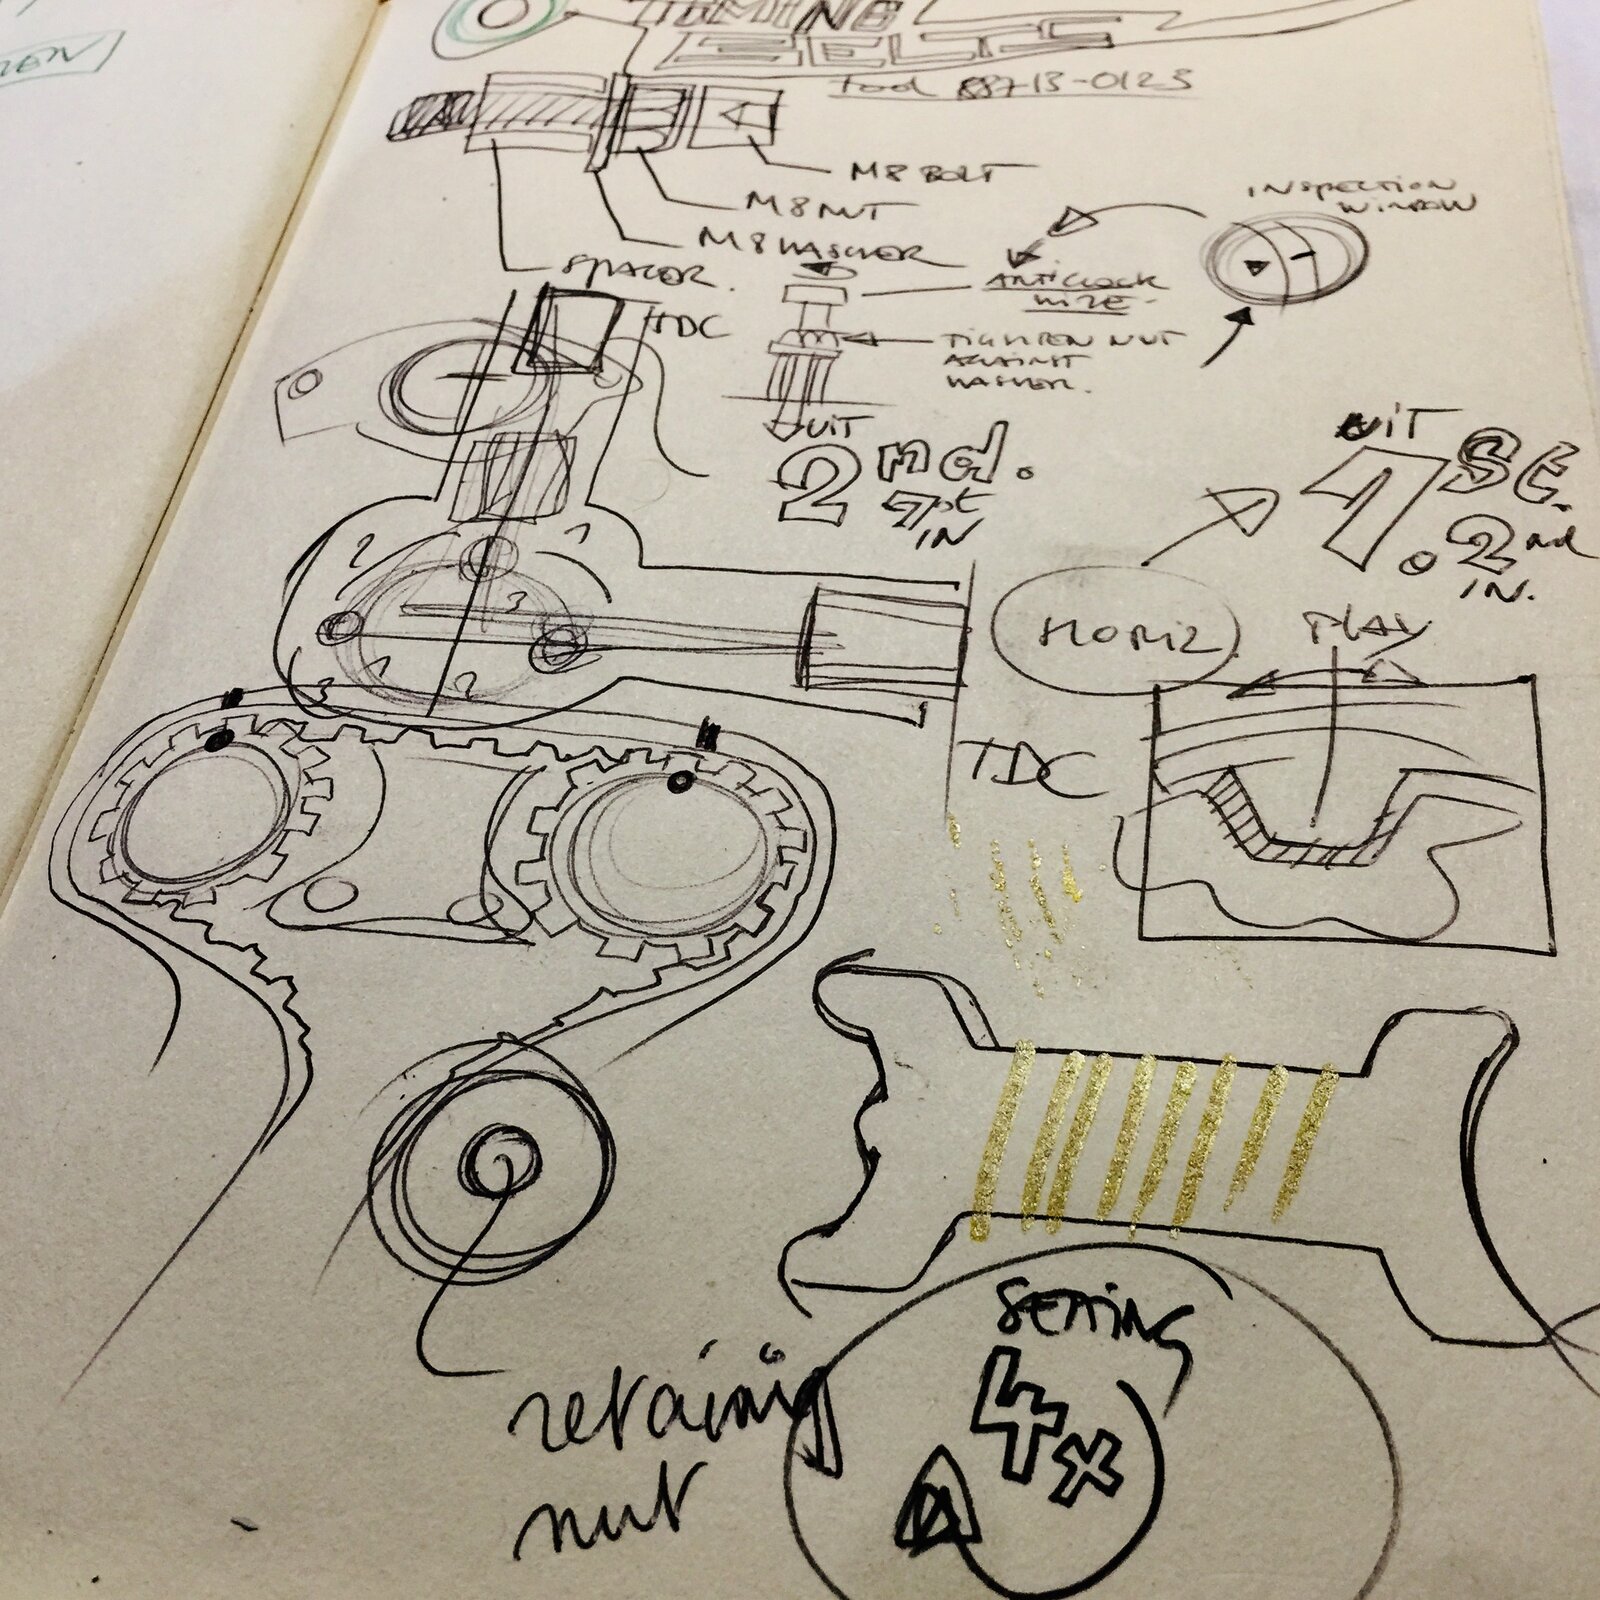 TIMING
BELTS
Tool 88713-0123
M8 BOLT
M8 NUT
M8 WASCHER
SPACER.
INSPECTION
WINDOW
ANTICLOCK
WIZE-
TIGHTEN NUT
AGAINST
WASHER.
TDC
UIT
2nd.
1st
IN
UIT
1st.
2nd
IN.
2
1
3
1
3
2
HORIZ.
PLAY
TDC
SETTING
4x
retaining
nut